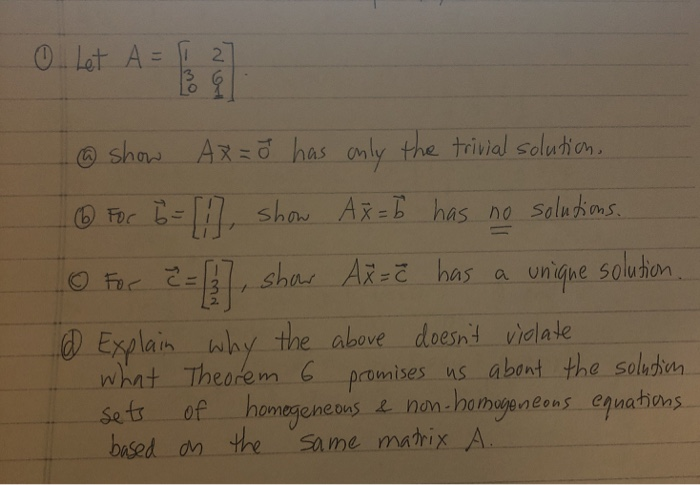 ① Let A = [1 2
3 6
0 1].
ⓐ show Ax⃗ = 0⃗ has only the trivial solution.
ⓑ For b⃗ = [1 1 1], show Ax̄ = b⃗ has no solutions.
ⓒ For c⃗ = [1 3 2], show Ax⃗ = c⃗ has a unique solution.
ⓓ Explain why the above doesn't violate
what Theorem 6 promises us about the solution
sets of homogeneous & non-homogeneous equations
based on the same matrix A.